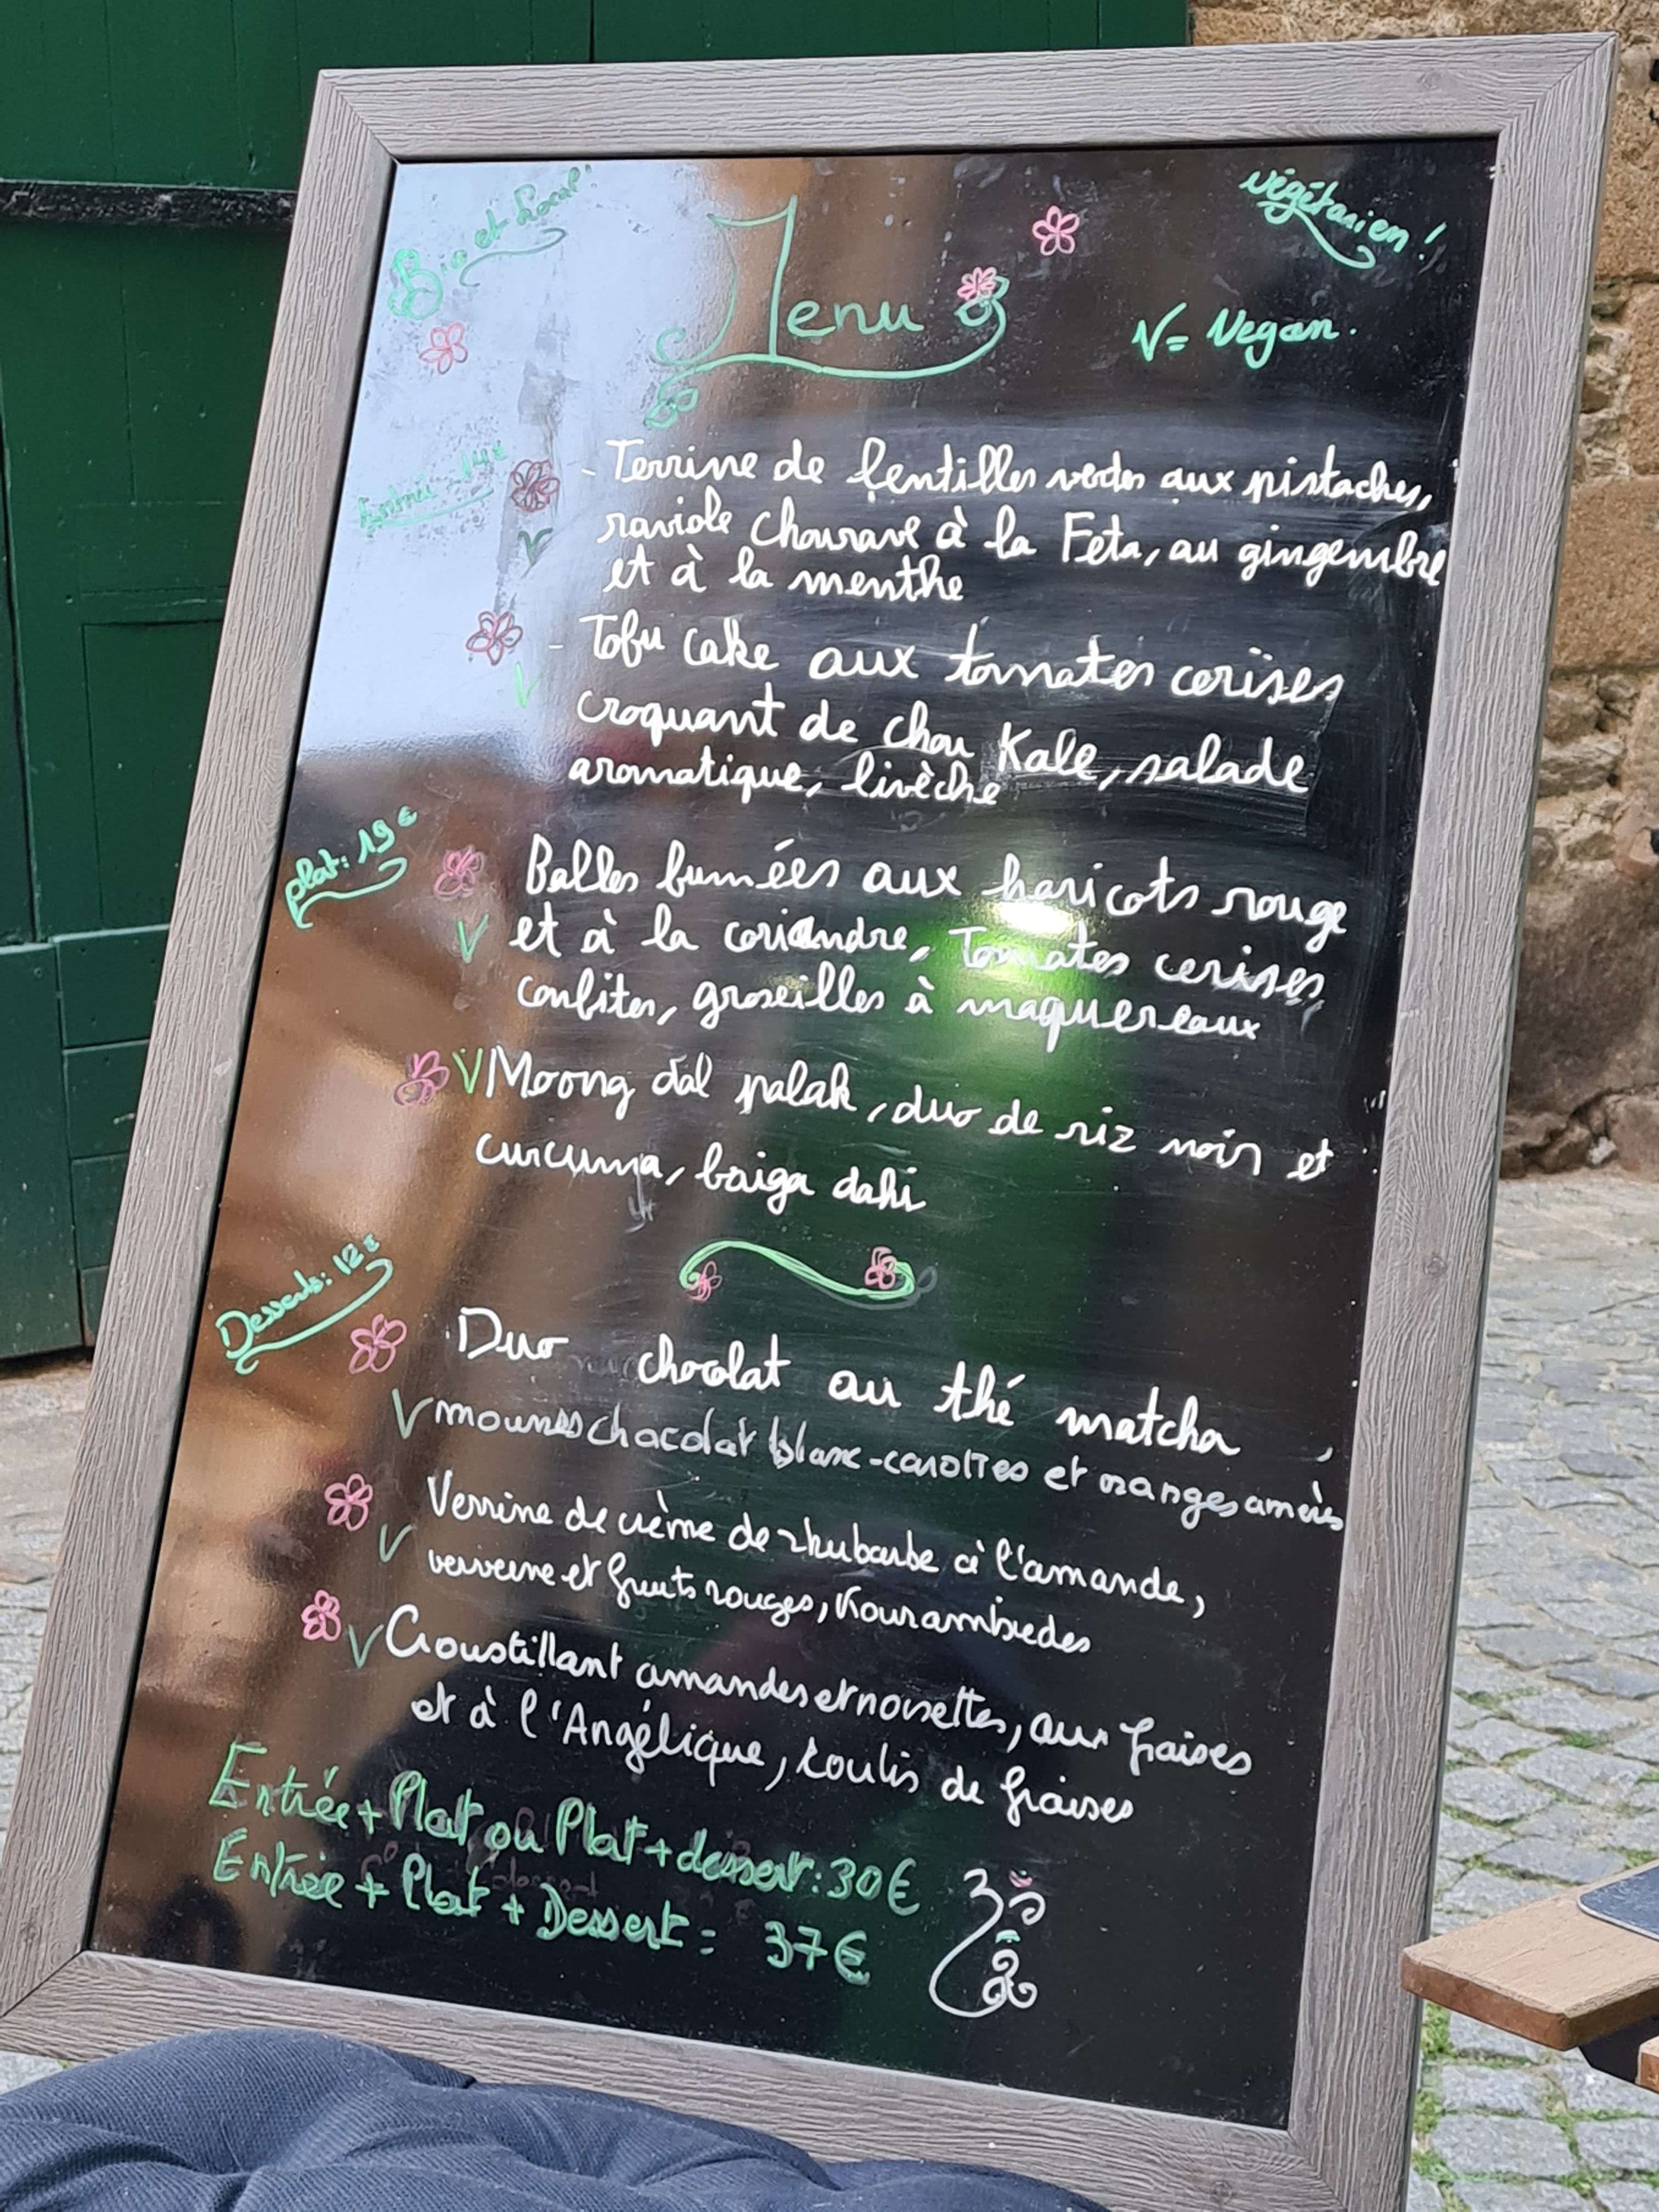 Bio et Local!
végétarien!
Menu
V= Vegan.
Entrée 14€
- Terrine de lentilles vertes aux pistaches,
raviole Chourave à la Feta, au gingembre
et à la menthe
V
- Tofu cake aux tomates cerises
V
croquant de chou Kale, salade
aromatique, livèche
plat: 19€
Balles fumées aux haricots rouge
V et à la coriandre, Tomates cerises
confites, groseilles à maquereaux
V Moong dal palak, duo de riz noir et
curcuma, baiga dahi
Desserts: 12€
Duo chocolat au thé matcha,
V mousses chocolat blanc-carottes et oranges amères
Verrine de crème de rhubarbe à l'amande,
V verveine et fruits rouges, Kourambiedes
V Croustillant amandes et noisettes, aux fraises
et à l'Angélique, coulis de fraises
Entrée + Plat ou Plat + dessert: 30€
Entrée + Plat + Dessert = 37€